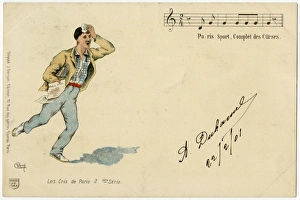 Pa ris Sport, Complet des Cûrses.
A. Duhamel
22/2/01
Les Cris de Paris 2. me Série.